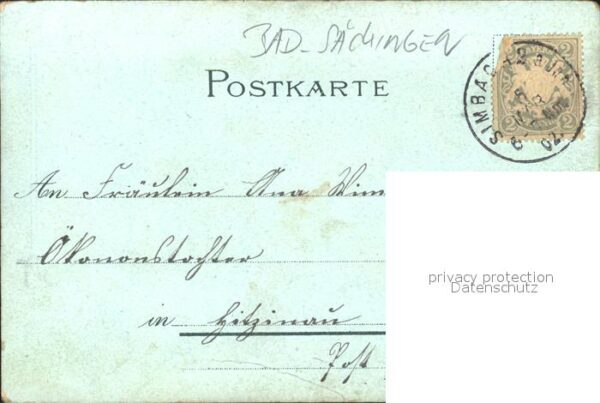 BAD-SÄCKINGEN
POSTKARTE
SIMBACH
2
2
02
An Fräulein Ana
Ökonomstochter
in Hitzinau
Post
privacy protection
Datenschutz